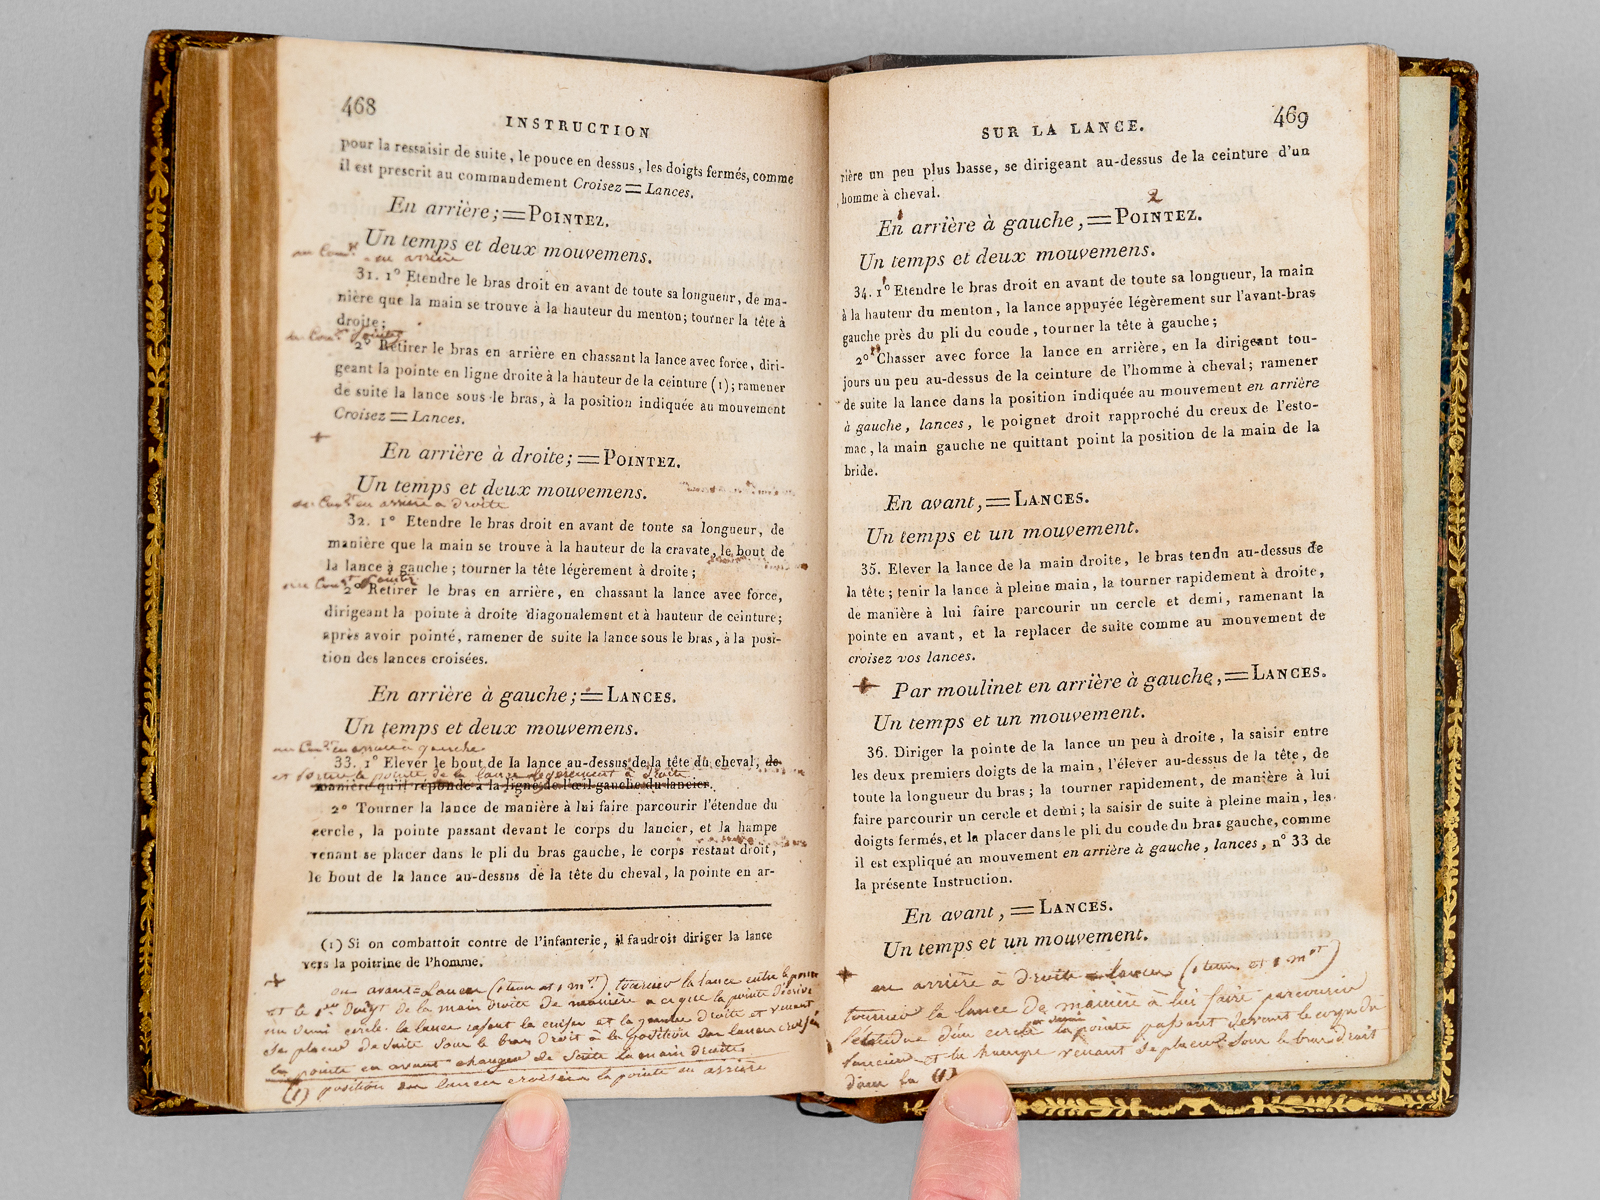 468
INSTRUCTION
pour la ressaisir de suite, le pouce en dessus, les doigts fermés, comme
il est prescrit au commandement Croisez = Lances.
En arrière; = POINTEZ.
Un temps et deux mouvemens.
en arrière
31. 1° Etendre le bras droit en avant de toute sa longueur, de ma-
nière que la main se trouve à la hauteur du menton; tourner la tête à
droite;
2° Retirer le bras en arrière en chassant la lance avec force, diri-
geant la pointe en ligne droite à la hauteur de la ceinture (1); ramener
de suite la lance sous le bras, à la position indiquée au mouvement
Croisez = Lances.
+
En arrière à droite; = POINTEZ.
Un temps et deux mouvemens.
en arriere a droite
32. 1° Etendre le bras droit en avant de toute sa longueur, de
manière que la main se trouve à la hauteur de la cravate, le bout de
la lance à gauche; tourner la tête légèrement à droite;
2° Retirer le bras en arrière, en chassant la lance avec force,
dirigeant la pointe à droite diagonalement et à hauteur de ceinture;
après avoir pointé, ramener de suite la lance sous le bras, à la posi-
tion des lances croisées.
En arrière à gauche; = LANCES.
Un temps et deux mouvemens.
en arriere à gauche
33. 1° Elever le bout de la lance au-dessus de la tête du cheval, de
la pointe de la lance legerement à droite
manière qu'il réponde à la ligne de l'œil gauche du lancier.
2° Tourner la lance de manière à lui faire parcourir l'étendue du
cercle, la pointe passant devant le corps du lancier, et la hampe
venant se placer dans le pli du bras gauche, le corps restant droit,
le bout de la lance au-dessus de la tête du cheval, la pointe en ar-
(1) Si on combattoit contre de l'infanterie, il faudroit diriger la lance
vers la poitrine de l'homme.
+ en avant = Lances (1 tems et 1 mt) tourner la lance entre le pouce
et le 1er Doigt de la main droite de maniere a ce que la pointe décrive
un demi cercle la lance rasant la cuisse et la jambe droite et venant
se placer de suite sous le bras droit à la position des lances croisées
la pointe en avant changer de suite la main droite.
(1) position des lances croisées la pointe en arriere
469
SUR LA LANCE.
rière un peu plus basse, se dirigeant au-dessus de la ceinture d'un
homme à cheval.
2
En arrière à gauche, = POINTEZ.
Un temps et deux mouvemens.
34. 1° Etendre le bras droit en avant de toute sa longueur, la main
à la hauteur du menton, la lance appuyée légèrement sur l'avant-bras
gauche près du pli du coude, tourner la tête à gauche;
2° Chasser avec force la lance en arrière, en la dirigeant tou-
jours un peu au-dessus de la ceinture de l'homme à cheval; ramener
de suite la lance dans la position indiquée au mouvement en arrière
à gauche, lances, le poignet droit rapproché du creux de l'esto-
mac, la main gauche ne quittant point la position de la main de la
bride.
En avant, = LANCES.
Un temps et un mouvement.
35. Elever la lance de la main droite, le bras tendu au-dessus de
la tête; tenir la lance à pleine main, la tourner rapidement à droite,
de manière à lui faire parcourir un cercle et demi, ramenant la
pointe en avant, et la replacer de suite comme au mouvement de
croisez vos lances.
+ Par moulinet en arrière à gauche, = LANCES.
Un temps et un mouvement.
36. Diriger la pointe de la lance un peu à droite, la saisir entre
les deux premiers doigts de la main, l'élever au-dessus de la tête, de
toute la longueur du bras; la tourner rapidement, de manière à lui
faire parcourir un cercle et demi; la saisir de suite à pleine main, les
doigts fermés, et la placer dans le pli du coude du bras gauche, comme
il est expliqué au mouvement en arrière à gauche, lances, n° 33 de
la présente Instruction.
En avant, = LANCES.
Un temps et un mouvement.
+ en arrière à Droite = lances (1 tems et 1 mt)
tourner la lance de maniere à lui faire parcourir
l'etendue d'un cercle la pointe passant devant le corps du
lancier et la hampe venant se placer sous le bras droit
dans la (1)